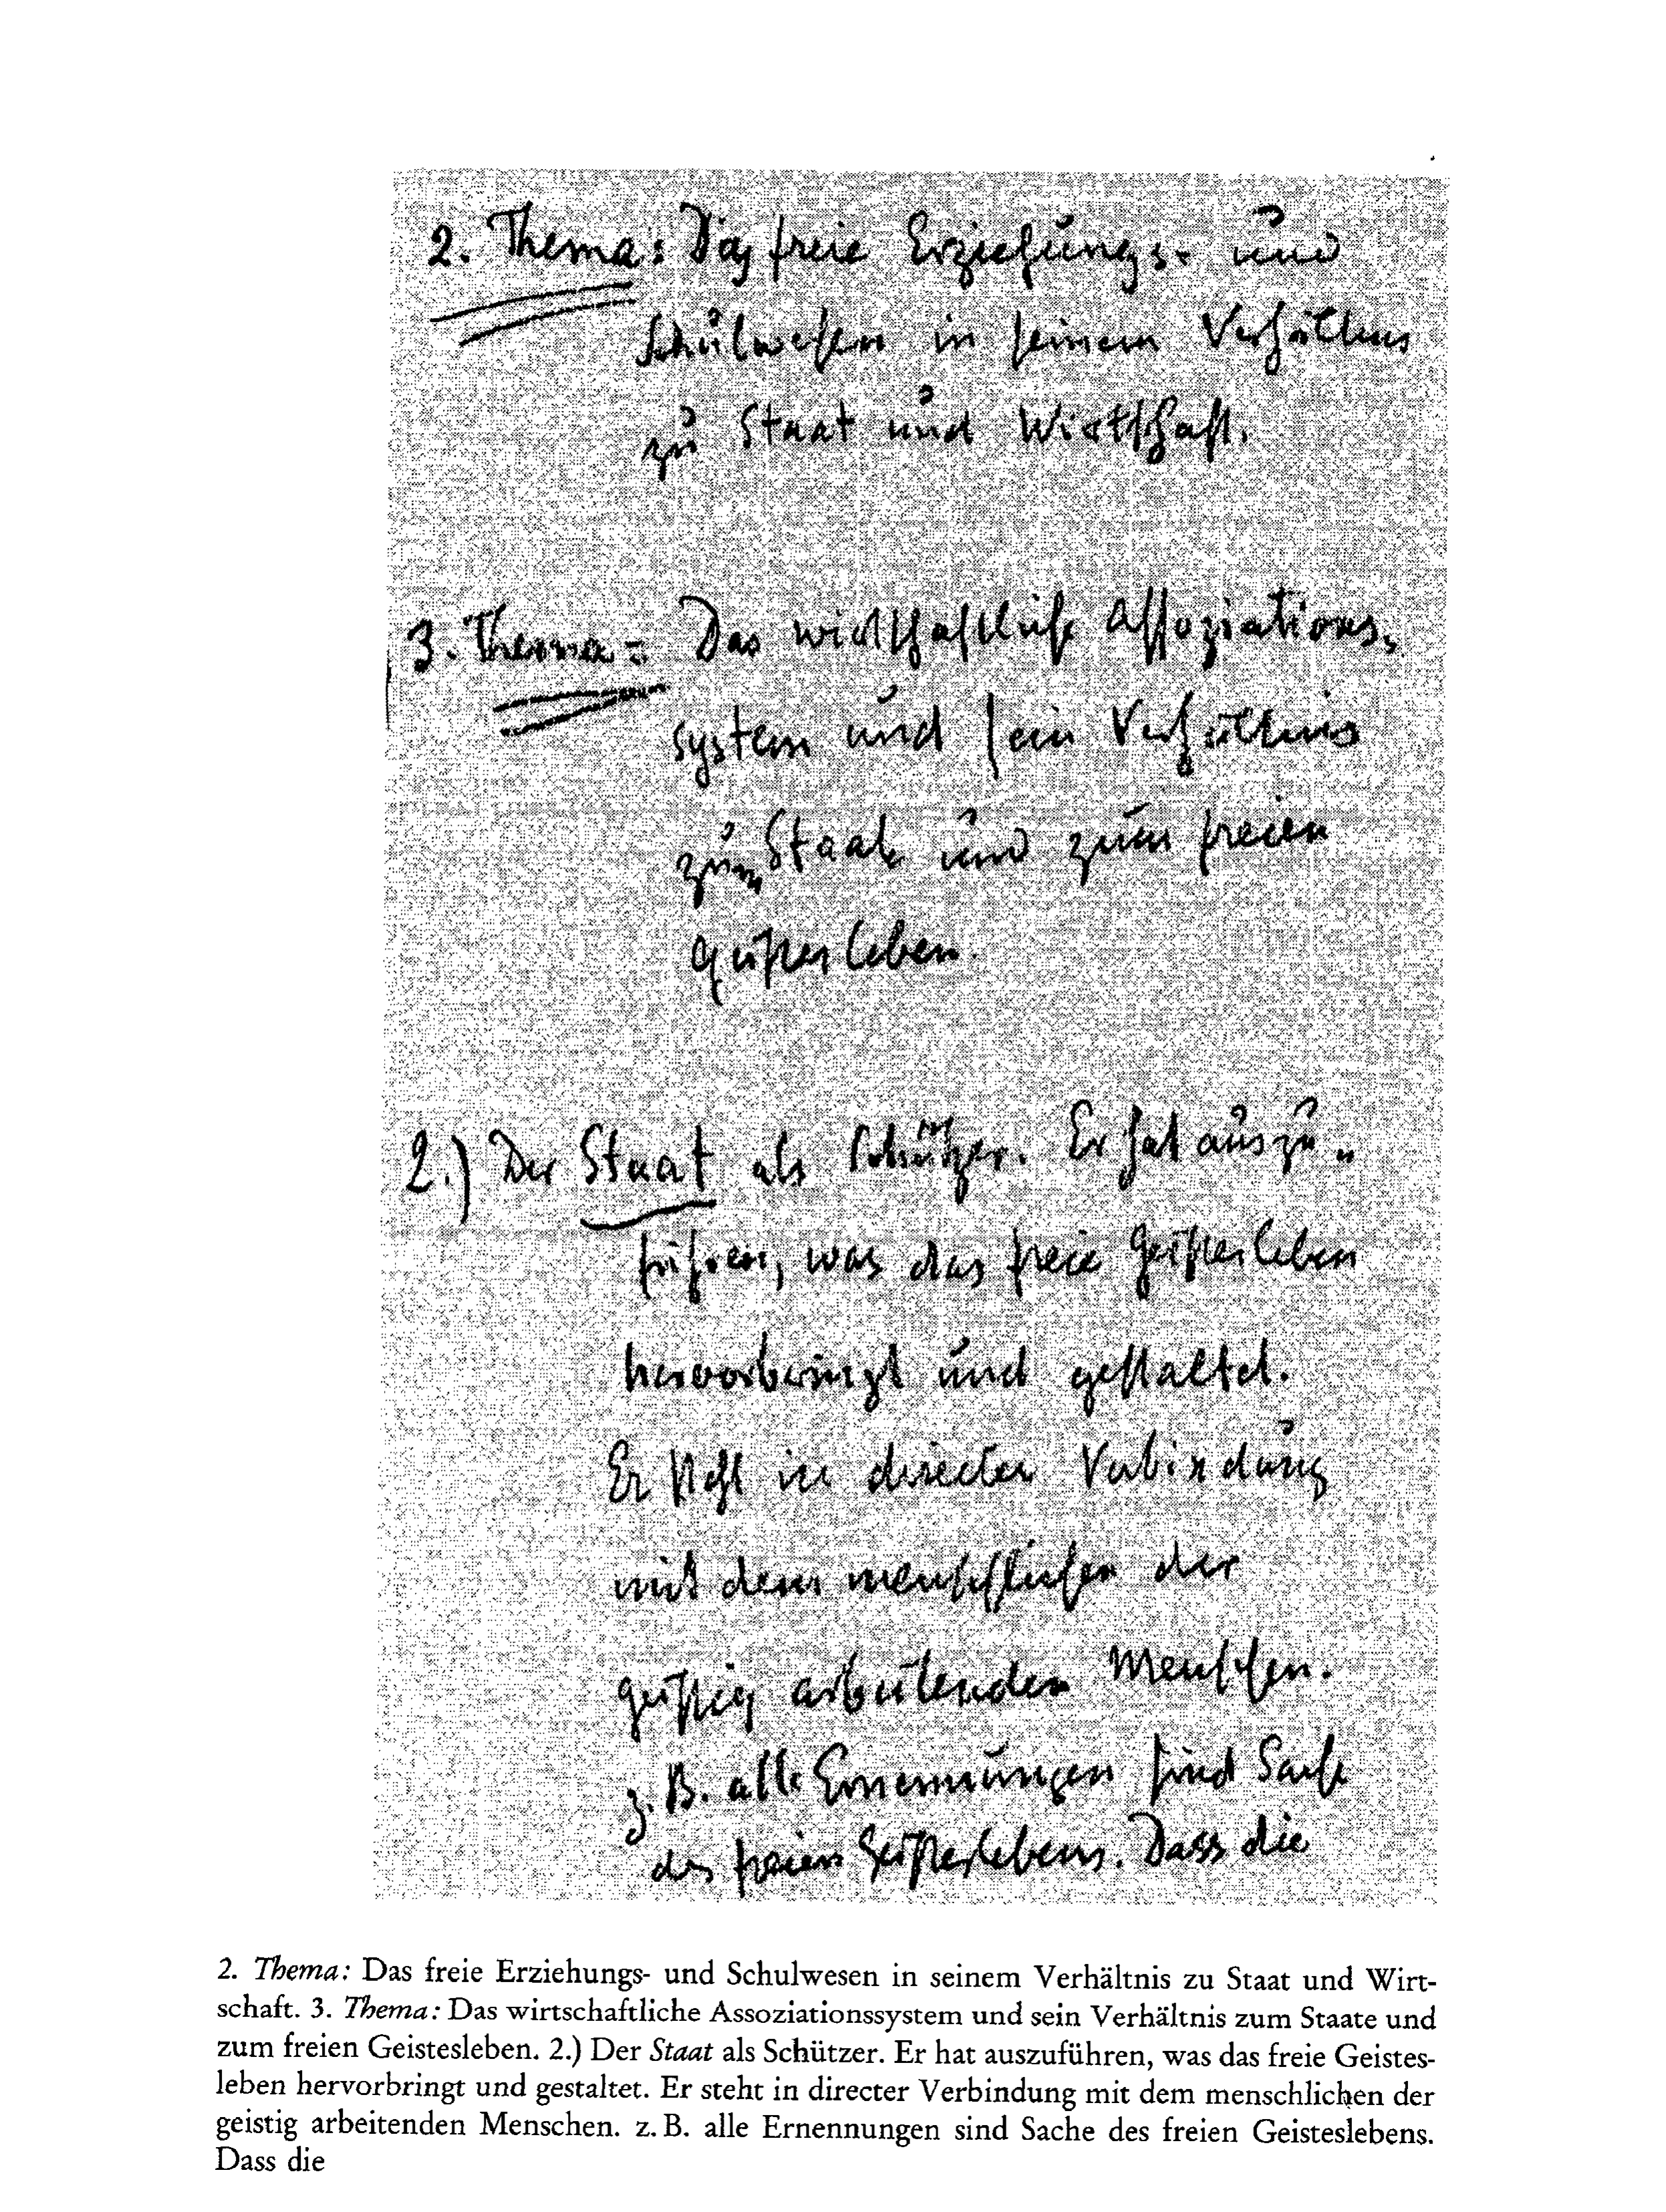 2. Thema: Das freie Erziehungs- und
Schulwesen in seinem Verhältnis
zu Staat und Wirtschaft.
3. Thema: Das wirtschaftliche Assoziations-
system und sein Verhältnis
zum Staate und zum freien
Geistesleben.
2.) Der Staat als Schützer. Er hat auszu-
führen, was das freie Geistesleben
hervorbringt und gestaltet.
Er steht in directer Verbindung
mit dem menschlichen der
geistig arbeitenden Menschen.
z. B. alle Ernennungen sind Sache
des freien Geisteslebens. Dass die
2. Thema: Das freie Erziehungs- und Schulwesen in seinem Verhältnis zu Staat und Wirt-
schaft. 3. Thema: Das wirtschaftliche Assoziationssystem und sein Verhältnis zum Staate und
zum freien Geistesleben. 2.) Der Staat als Schützer. Er hat auszuführen, was das freie Geistes-
leben hervorbringt und gestaltet. Er steht in directer Verbindung mit dem menschlichen der
geistig arbeitenden Menschen. z. B. alle Ernennungen sind Sache des freien Geisteslebens.
Dass die